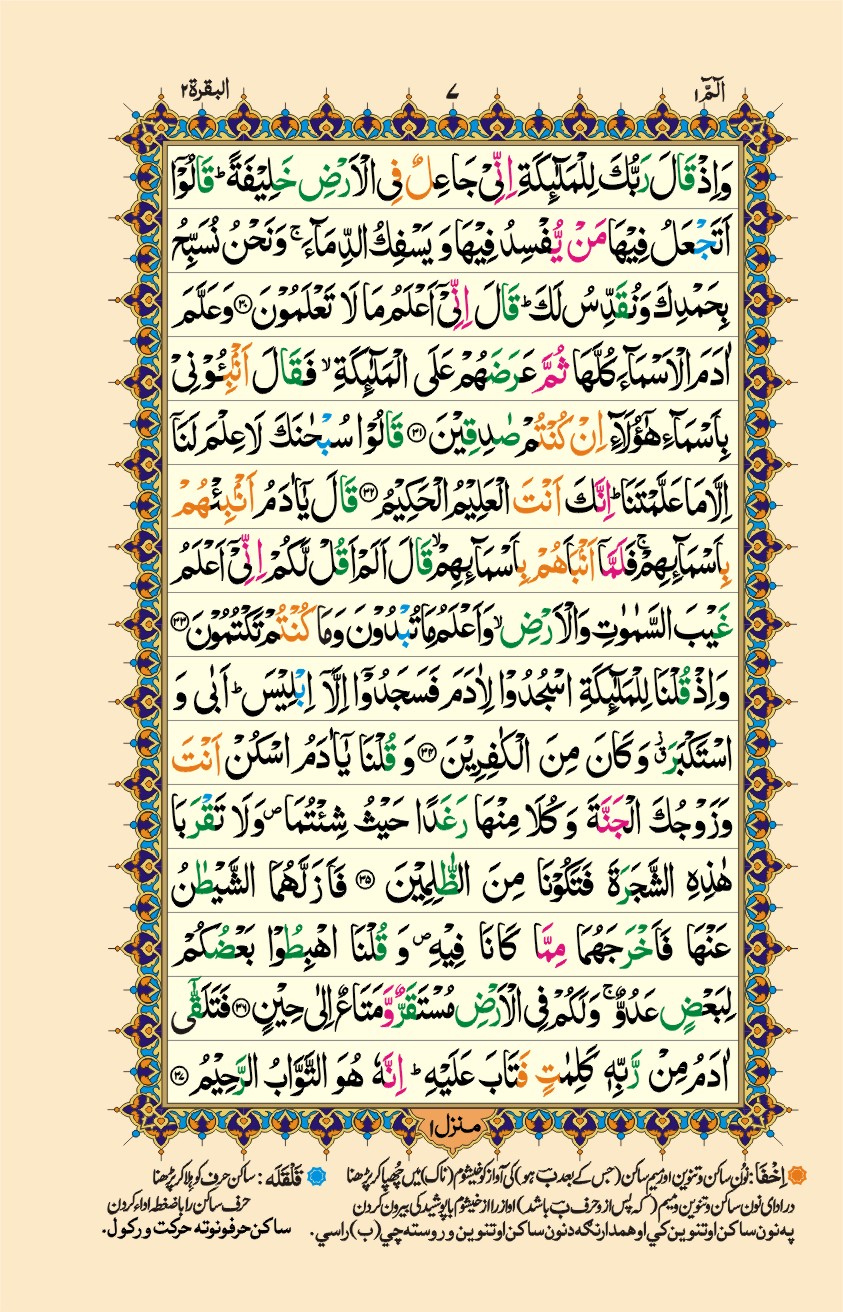 الٓمّٓ ۱ ۷ البقرة ۲
وَاِذْ قَالَ رَبُّكَ لِلْمَلٰٓئِكَةِ اِنِّیْ جَاعِلٌ فِی الْاَرْضِ خَلِیْفَةً ؕ قَالُوْۤا
اَتَجْعَلُ فِیْهَا مَنْ یُّفْسِدُ فِیْهَا وَ یَسْفِكُ الدِّمَآءَ ۚ وَنَحْنُ نُسَبِّحُ
بِحَمْدِكَ وَنُقَدِّسُ لَكَ ؕ قَالَ اِنِّیْۤ اَعْلَمُ مَا لَا تَعْلَمُوْنَ ﴿۳۰﴾ وَعَلَّمَ
اٰدَمَ الْاَسْمَآءَ كُلَّهَا ثُمَّ عَرَضَهُمْ عَلَی الْمَلٰٓئِكَةِ ۙ فَقَالَ اَنْۢبِـُٔوْنِیْ
بِاَسْمَآءِ هٰۤؤُلَآءِ اِنْ كُنْتُمْ صٰدِقِیْنَ ﴿۳۱﴾ قَالُوْا سُبْحٰنَكَ لَا عِلْمَ لَنَاۤ
اِلَّا مَا عَلَّمْتَنَا ؕ اِنَّكَ اَنْتَ الْعَلِیْمُ الْحَكِیْمُ ﴿۳۲﴾ قَالَ یٰۤاٰدَمُ اَنْۢبِئْهُمْ
بِاَسْمَآئِهِمْ ۚ فَلَمَّاۤ اَنْۢبَاَهُمْ بِاَسْمَآئِهِمْ ۙ قَالَ اَلَمْ اَقُلْ لَّكُمْ اِنِّیْۤ اَعْلَمُ
غَیْبَ السَّمٰوٰتِ وَالْاَرْضِ ۙ وَاَعْلَمُ مَا تُبْدُوْنَ وَمَا كُنْتُمْ تَكْتُمُوْنَ ﴿۳۳﴾
وَاِذْ قُلْنَا لِلْمَلٰٓئِكَةِ اسْجُدُوْا لِاٰدَمَ فَسَجَدُوْۤا اِلَّاۤ اِبْلِیْسَ ؕ اَبٰی وَ
اسْتَكْبَرَ ۫ۗ وَكَانَ مِنَ الْكٰفِرِیْنَ ﴿۳۴﴾ وَ قُلْنَا یٰۤاٰدَمُ اسْكُنْ اَنْتَ
وَزَوْجُكَ الْجَنَّةَ وَكُلَا مِنْهَا رَغَدًا حَیْثُ شِئْتُمَا ۪ وَلَا تَقْرَبَا
هٰذِهِ الشَّجَرَةَ فَتَكُوْنَا مِنَ الظّٰلِمِیْنَ ﴿۳۵﴾ فَاَزَلَّهُمَا الشَّیْطٰنُ
عَنْهَا فَاَخْرَجَهُمَا مِمَّا كَانَا فِیْهِ ۪ وَ قُلْنَا اهْبِطُوْا بَعْضُكُمْ
لِبَعْضٍ عَدُوٌّ ۚ وَلَكُمْ فِی الْاَرْضِ مُسْتَقَرٌّ وَّمَتَاعٌ اِلٰی حِیْنٍ ﴿۳۶﴾ فَتَلَقّٰۤی
اٰدَمُ مِنْ رَّبِّهٖ كَلِمٰتٍ فَتَابَ عَلَیْهِ ؕ اِنَّهٗ هُوَ التَّوَّابُ الرَّحِیْمُ ﴿۳۷﴾
منزل ۱
اِخْفَا: نون ساکن و تنوین اور میم ساکن (جس کے بعد ب ہو) کی آواز کو خیشوم (ناک) میں چھپا کر پڑھنا قَلْقَلَه: ساکن حرف کو ہلا کر پڑھنا
در ادای نون ساکن و تنوین و میم ( که پس از و حرف ب باشد ) اواز را از خیشوم با پوشیدگی بیرون کردن حرف ساکن را با ضغطه اداء کردن
په نون ساکن او تنوین کي او همدارنګه د نون ساکن او تنوین و روسته چي (ب) راسي. ساکن حرفونو ته حرکت ورکول.